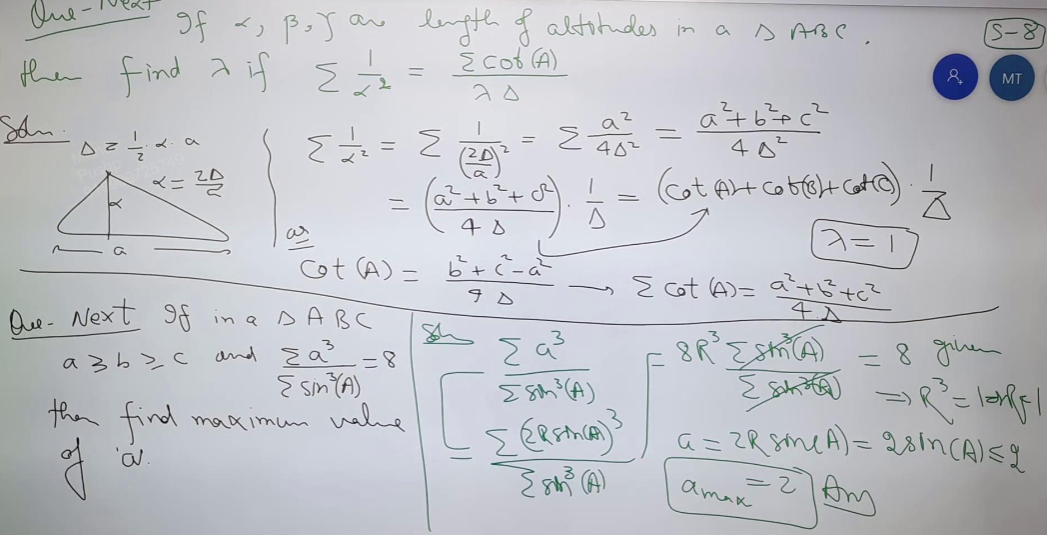 Que-Next If α, β, γ are length of altitudes in a Δ ABC.
S-8
then find λ if Σ 1/α² = Σ cot(A) / λΔ
MT
Soln.
Δ = 1/2 · α · a
α = 2Δ/a
α
a
Σ 1/α² = Σ 1/(2Δ/a)² = Σ a²/4Δ² = (a²+b²+c²)/4Δ²
= ((a²+b²+c²)/4Δ) · 1/Δ = (cot(A)+cot(B)+cot(C)) · 1/Δ
λ=1
as
Cot(A) = (b²+c²-a²)/4Δ → Σ cot(A) = (a²+b²+c²)/4Δ
Que- Next If in a Δ ABC
a ≥ b ≥ c and Σa³/Σsin³(A) = 8
then find maximum value
of 'a'.
Soln
Σa³/Σsin³(A)
= Σ(2Rsin(A))³/Σsin³(A)
= 8R³ Σsin³(A)/Σsin³(A) = 8 given
⇒ R³=1⇒R=1
a = 2R sin(A) = 2sin(A) ≤ 2
a max = 2 Ans